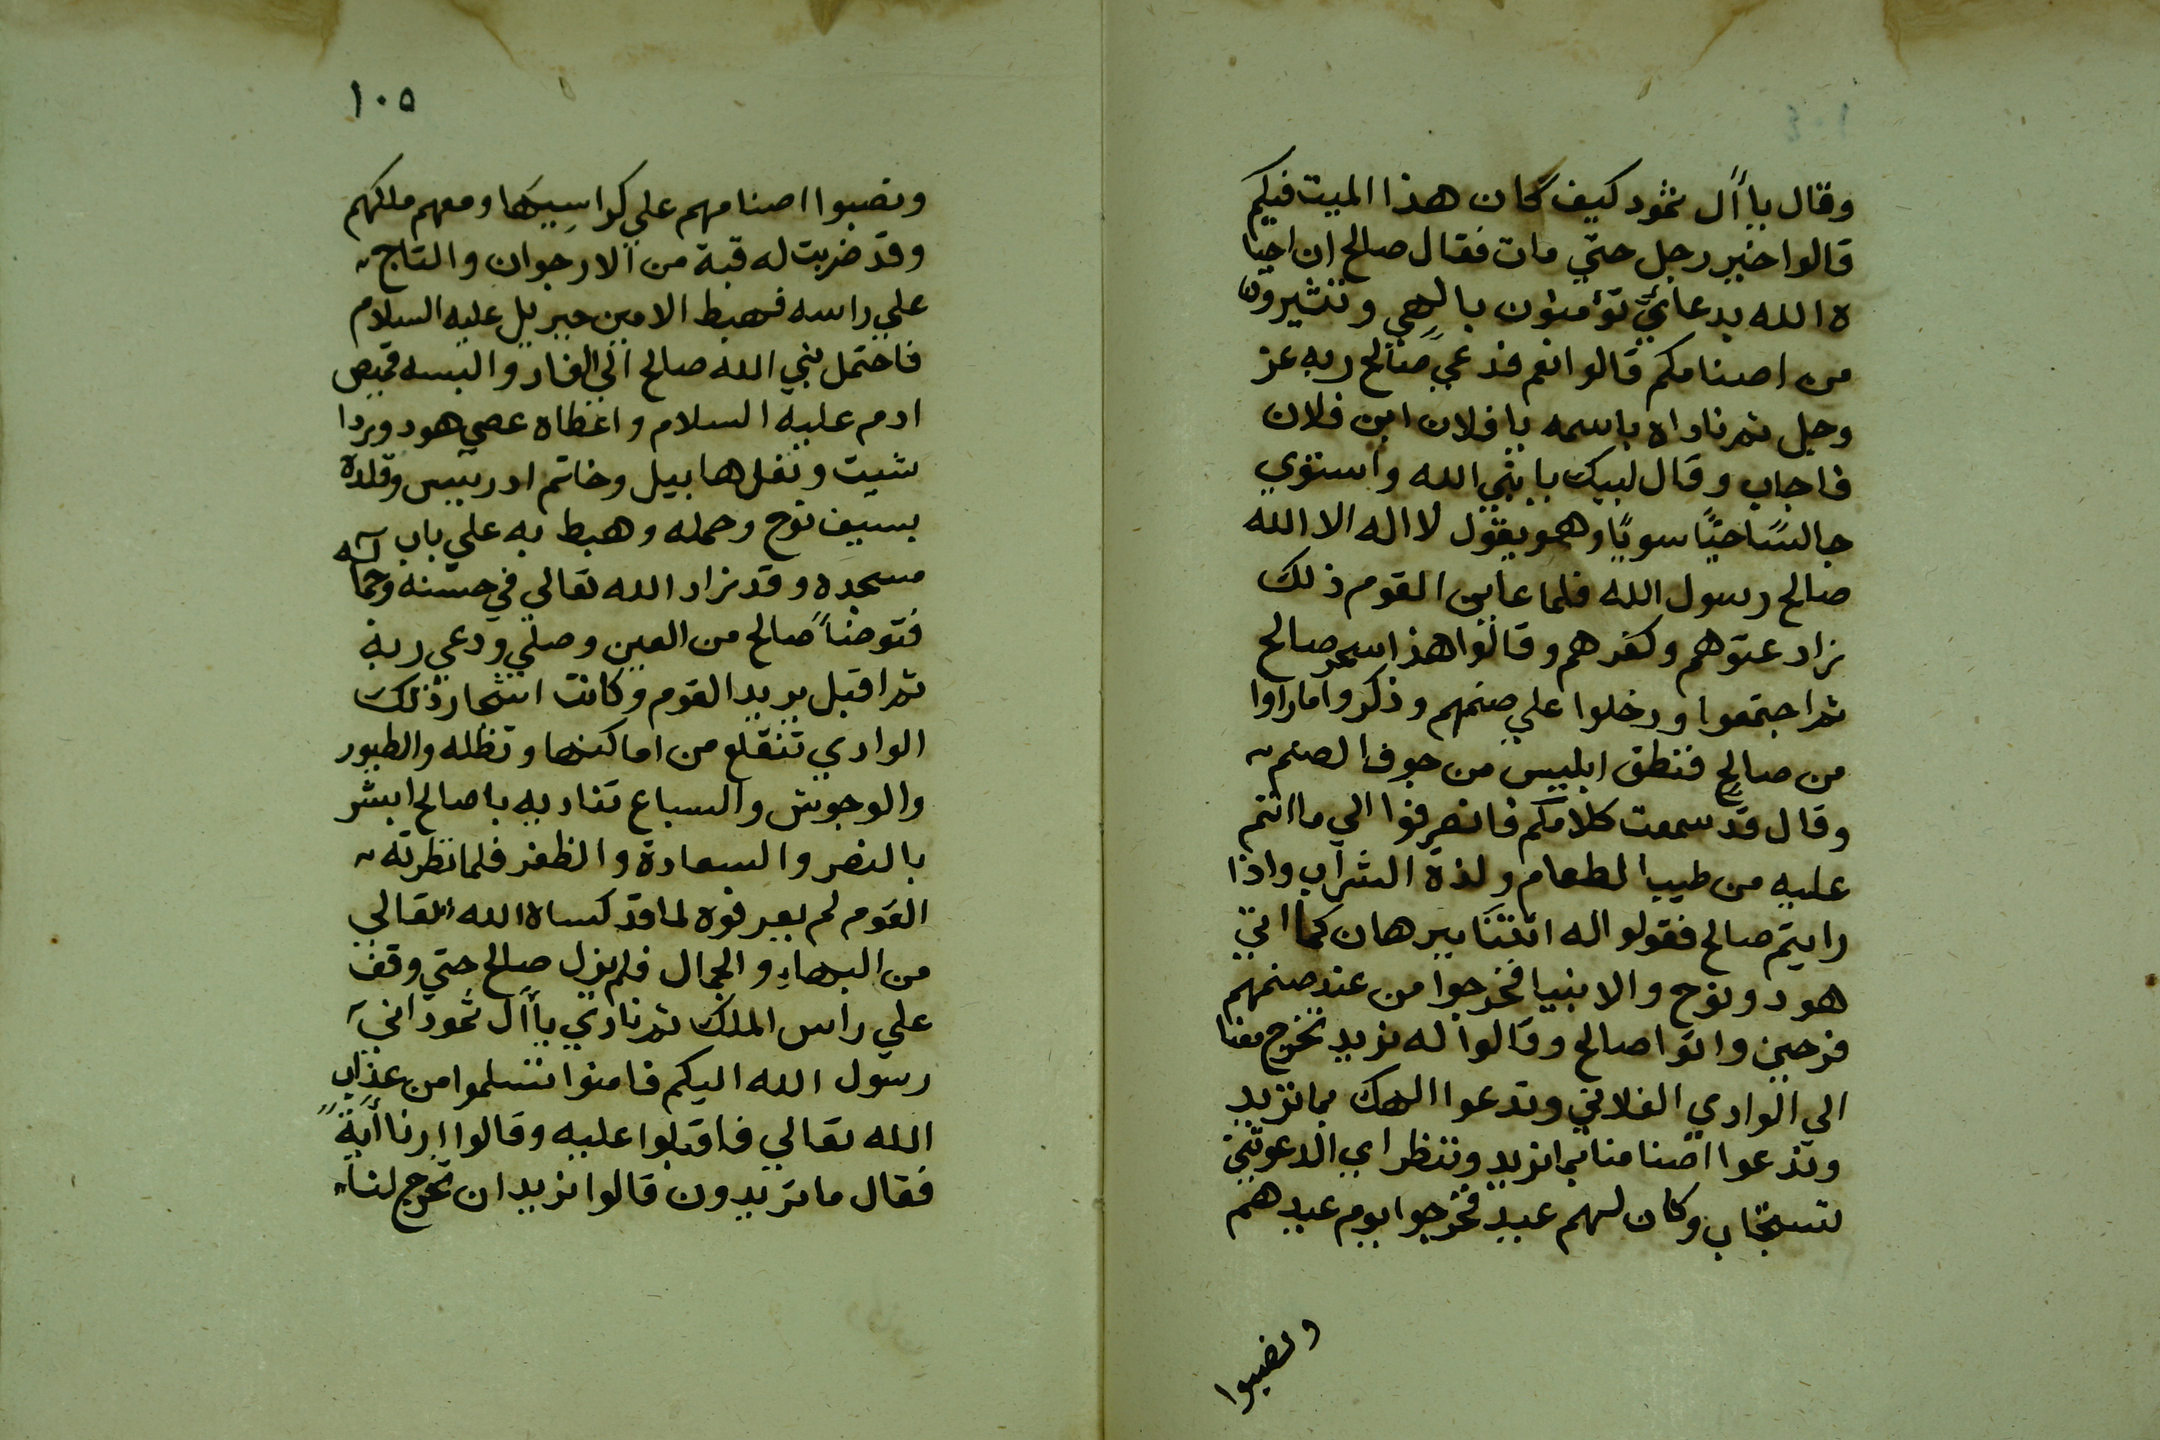 ١٠٤
وقال ياأل ثمود كيف كان هذا الميت فيكم
قالوا خير رجل حتي مات فقال صالح ان احيا
ه الله بدعائي تؤمنون بالهي وتتبرون
من اصنامكم قالوا نعم فدعي صالح ربه عز
وجل ثم ناداه باسمه يا فلان ابن فلان
فاجاب وقال لبيك يا نبي الله واستوي
جالسًا حيًا سويًا وهو يقول لا اله الا الله
صالح رسول الله فلما عاين القوم ذلك
زاد عتوهم وكفرهم وقالوا هذا سحر صالح
ثم اجتمعوا ودخلوا علي صنمهم وذكروا ماراوا
من صالح فنطق ابليس من جوف الصنم
وقال قد سمعت كلامكم فانصرفوا الي ما انتم
عليه من طيب الطعام ولذة الشراب واذا
رايتم صالح فقولو اله ائتنا ببرهان كما اتي
هود ونوح والانبيا فخرجوا من عند صنمهم
فرحين واتوا صالح وقالوا له نريد تخرج معنا
الي الوادي الفلاني وتدعوا الهك بما نريد
وندعوا اصنامنا بما نريد وننظر اي الدعوتين
تستجاب وكان لهم عيد فخرجوا يوم عيدهم
ونصبوا
١٠٥
ونصبوا اصنامهم علي كراسيها ومعهم ملكهم
وقد ضربت له قبة من الارجوان والتاج
علي راسه فهبط الامين جبريل عليه السلام
فاحتمل نبي الله صالح الي الغار والبسه قميص
ادم عليه السلام واعطاه عصي هود وبردا
شيت ونعل هابيل وخاتم ادريس وقلده
بسيف نوح وحمله وهبط به علي باب
مسجده وقد زاد الله تعالي في حسنه وجماله
فتوضأ صالح من العين وصلي ودعي ربه
ثم اقبل يريد القوم وكانت اشجار ذلك
الوادي تنقلع من اماكنها وتظله والطيور
والوحوش والسباع تناديه يا صالح ابشر
بالنصر والسعادة والظفر فلما نظرته
القوم لم يعرفوه لما قد كساه الله تعالي
من البهاء والجمال فلم يزل صالح حتي وقف
علي راس الملك ثم نادي ياأل ثمود اني
رسول الله اليكم فامنوا تسلموا من عذاب
الله تعالي فاقبلوا عليه وقالوا ارنا أية
فقال ما تريدون قالوا نريد ان تخرج لنا